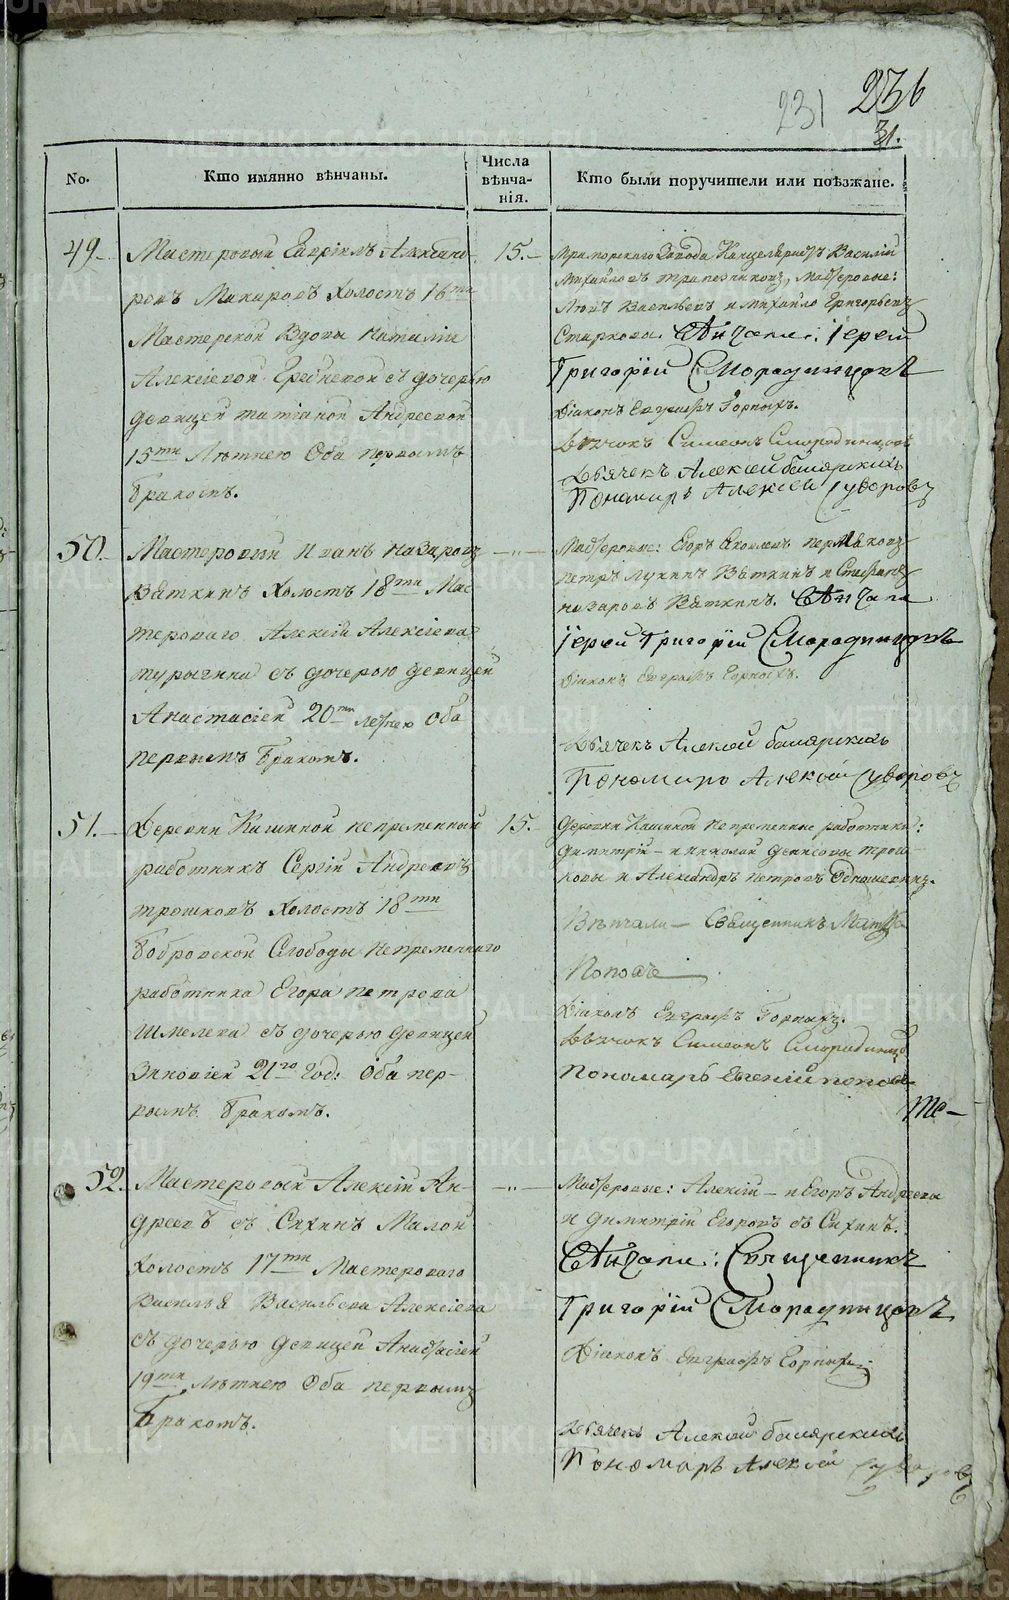 231
236
31.
No.
Кто имянно вѣнчаны.
Числа
вѣнча-
нія.
Кто были поручители или поѣзжане.
49.
Мастеровый Гаврiилъ Александ
ровъ Макаровъ Холостъ 16ти
Мастерской Вдовы Наталiи
Алексiевой с дочерью
девицей Татiаной Андреевой
15ти Лѣтнею Оба первымъ
бракомъ.
15.
Мраморскаго Завода Василiй
Михайловъ Мастеровые:
Васильевъ и Михайло Григорьевъ
Вѣнчали: Iерей
Григорiй Смородинцовъ
Дiаконъ Евграфъ Горныхъ.
Дьячокъ Симеонъ Смородинцовъ
Дьячекъ Алексей баиярскихъ
Пономарь Алексiй Суворовъ
50.
Мастеровый Иванъ Назаровъ
Вяткинъ Холостъ 18ти Мас
тероваго Алексiя Алексiева
Турыгина съ дочерью девицей
Анастасiей 20ти летнею оба
первымъ бракомъ.
Мастеровые: Егоръ
Петръ Лукинъ Вяткинъ и Стефанъ
Назаровъ Вяткинъ. Вѣнчали
Iерей Григорiй Смородинцовъ
Дiаконъ Евграфъ Горныхъ.
Дьячекъ Алексей баиярскихъ
Пономарь Алексiй Суворовъ
51.
Деревни Кашиной непременный
работникъ Сергiй Андреевъ
Трошковъ Холостъ 18ти
Бобровской Слободы Непременнаго
работника Егора Петрова
Шмелева съ дочерью девицей
Зиновiей 21го Год: Оба пер-
вымъ бракомъ.
15.
Деревни Кашиной Непременные работники:
Димитрiй - и Николай Денисовы Трош-
ковы и Александръ Петровъ
Вѣнчали - Священникъ
Поповъ
Дiаконъ Евграфъ Горныхъ.
Дьячокъ Симеонъ Смородинцовъ
Пономарь Евгенiй Поповъ
Ме-
52.
Мастеровый Алексiй Ан-
дреевъ Сухинъ Малой
Холостъ 17ти Мастероваго
Василья Васильева Алексiева
съ дочерью девицей Анастасiей
19ти Лѣтнею Оба первымъ
бракомъ.
Мастеровые: Алексiй - и Егоръ Андреевы
и Димитрiй Егоровъ Сухинъ.
Вѣнчали: Священникъ
Григорiй Смородинцовъ
Дiаконъ Евграфъ Горныхъ
Дьячекъ Алексей баиярскихъ
Пономарь Алексiй Суворовъ
METRIKI.GASO-URAL.RU